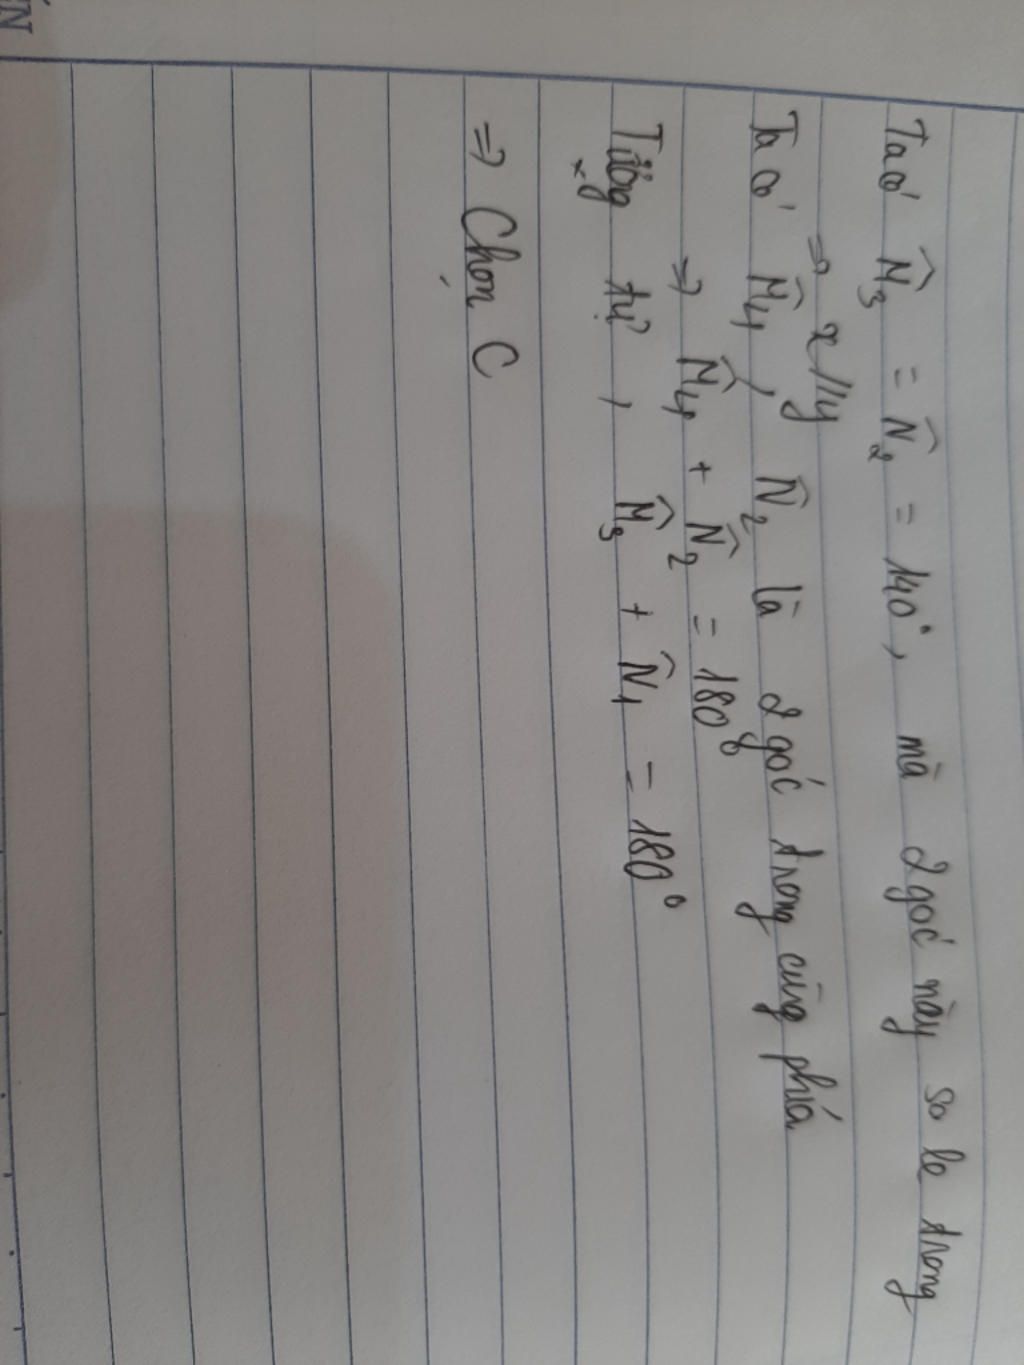 Ta có M̂₃ = N̂₂ = 140°, mà 2 góc này so le trong
⇒ x//y
Ta có M̂₄, N̂₂ là 2 góc trong cùng phía
⇒ M̂₄ + N̂₂ = 180°
Tương tự, M̂₃ + N̂₁ = 180°
⇒ Chọn C